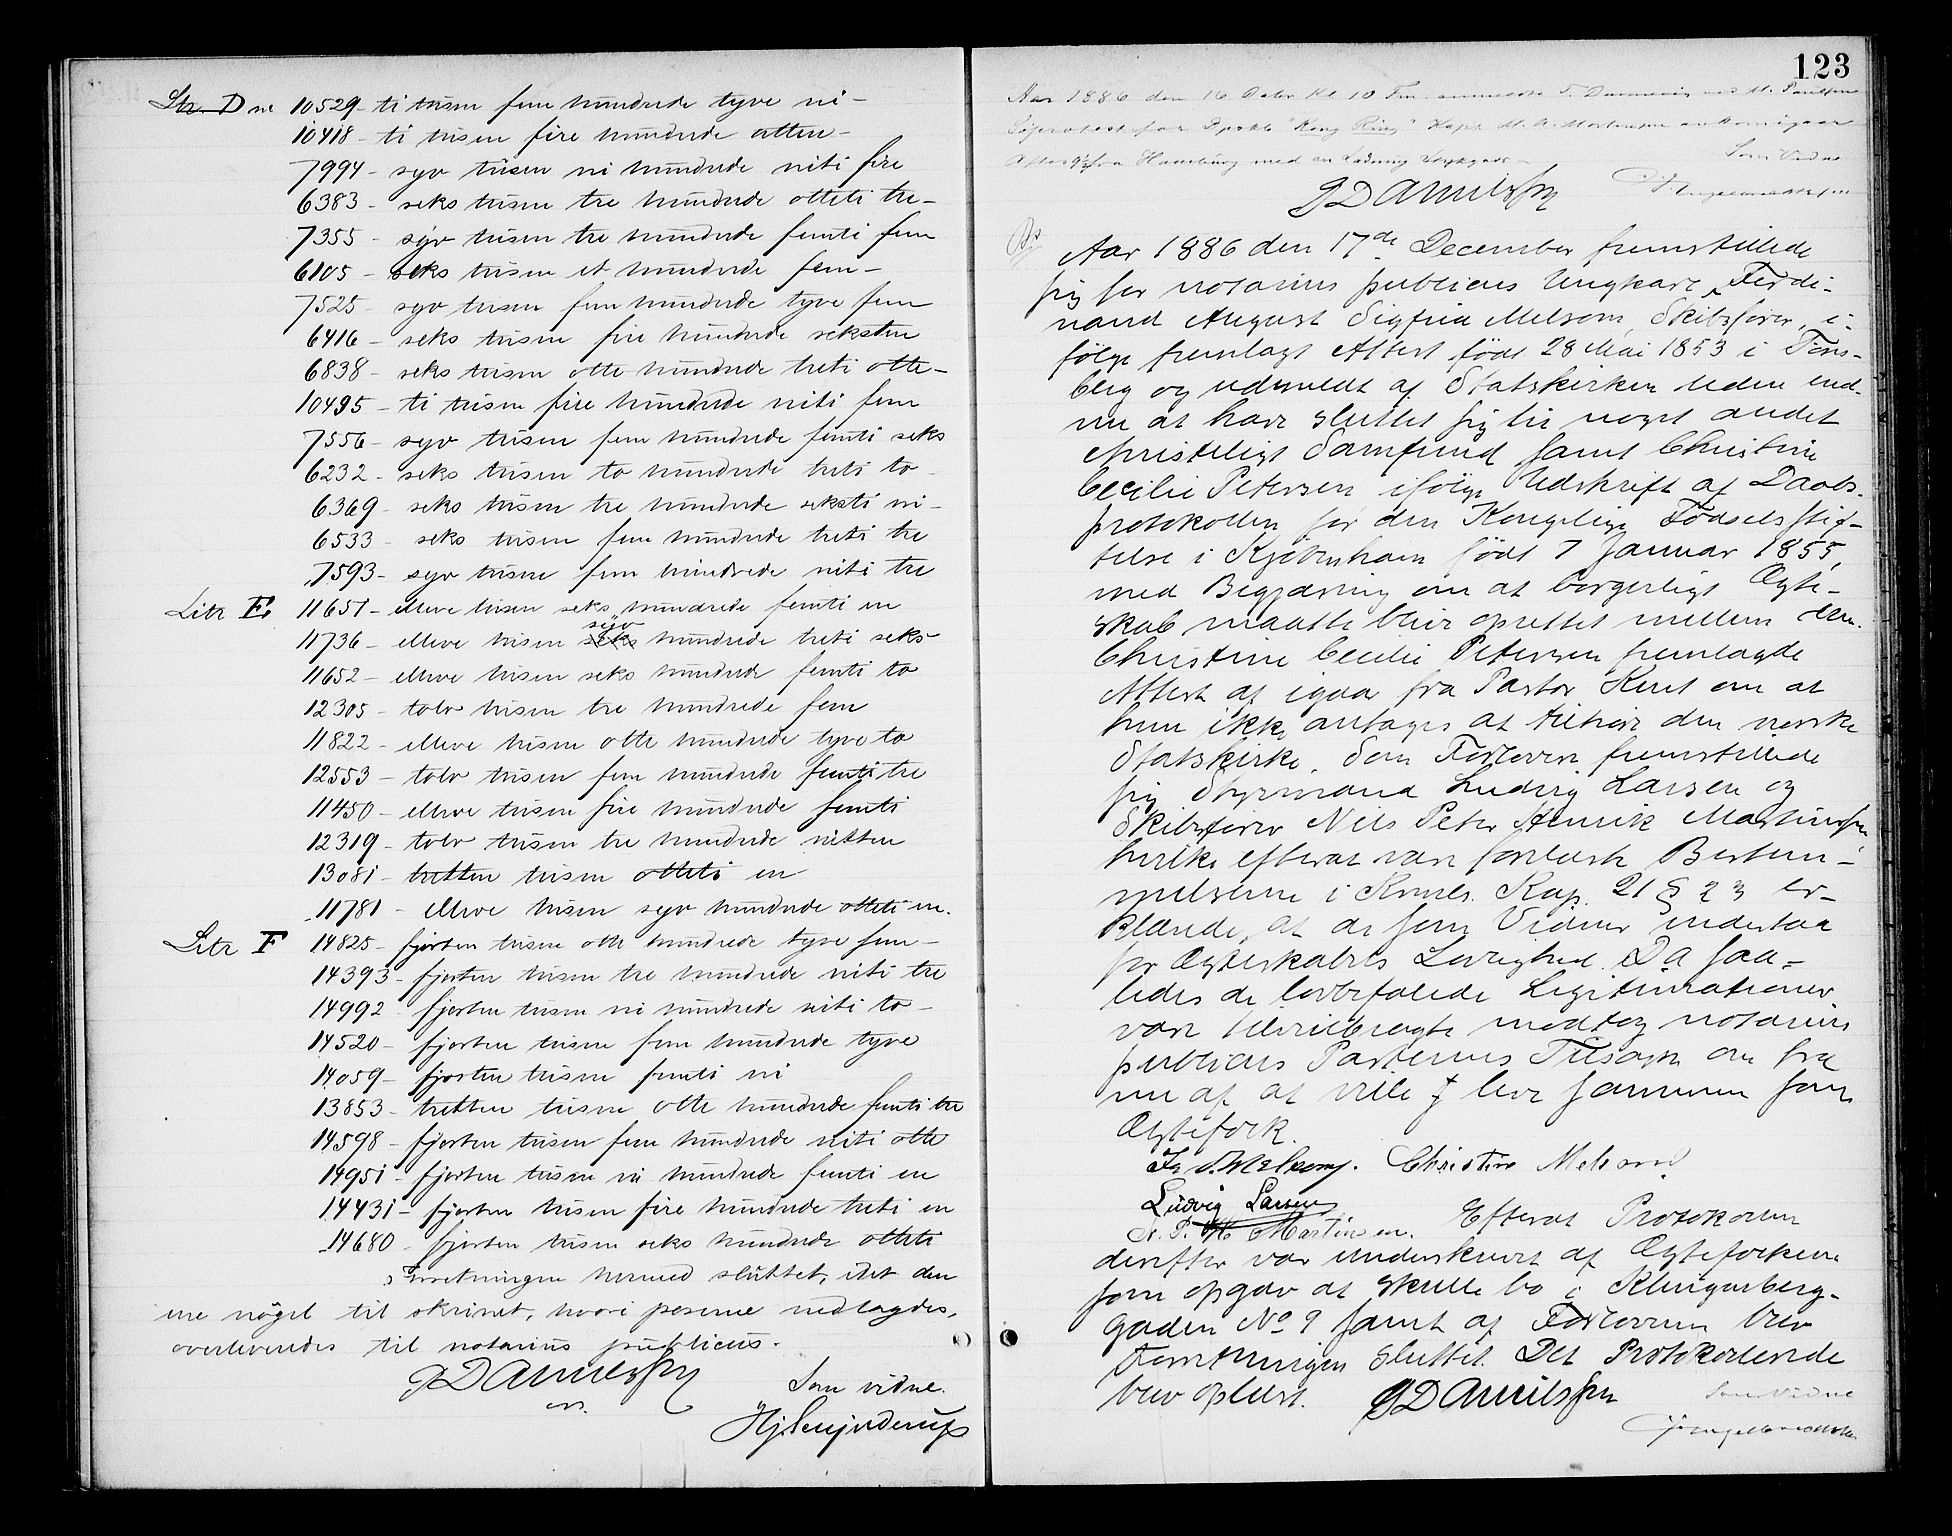 Litr. D ne 10529 - ti tusen fem hundrede tyve ni -
10418 - ti tusen fire hundrede atten -
7994 - syv tusen ni hundrede niti fire
6383 - seks tusen tre hundrede otteti tre -
7355 - syv tusen tre hundrede femti fem
6105 - seks tusen et hundrede fem -
7525 - syv tusen fem hundrede tyve fem
6416 - seks tusen fire hundrede seksten
6838 - seks tusen otte hundrede treti otte -
10495 - ti tusen fire hundrede niti fem
7556 - syv tusen fem hundrede femti seks
6232 - seks tusen to hundrede treti to -
6369 - seks tusen tre hundrede seksti ni -
6533 - seks tusen fem hundrede treti tre
7593 - syv tusen fem hundrede niti tre
Litr E 11651 - elleve tusen seks hundrede femti en
syv
11736 - elleve tusen seks hundrede treti seks
11652 - elleve tusen seks hundrede femti to
12305 - tolv tusen tre hundrede fem
11822 - elleve tusen otte hundrede tyve to
12553 - tolv tusen fem hundrede femti tre
11450 - elleve tusen fire hundrede femti
12319 - tolv tusen tre hundrede nitten
13081 - tretten tusen otteti en
11781 - elleve tusen syv hundrede otteti en.
Litr F 14825 - fjorten tusen otte hundrede tyve fem -
14393 - fjorten tusen tre hundrede niti tre
14992 - fjorten tusen ni hundrede niti to -
14520 - fjorten tusen fem hundrede tyve
14059 - fjorten tusen femti ni
13853 - tretten tusen otte hundrede femti tre
14598 - fjorten tusen fem hundrede niti otte
14951 - fjorten tusen ni hundrede femti en
14431 - fjorten tusen fire hundrede treti en
14680 - fjorten tusen seks hundrede otteti
Forretningen hermed sluttet, idet den
ene nögel til skrinet, hvori poserne nedlagdes,
overleveredes til notarius publicus.
G Danielssen
Som vidne.
123
Aar 1886 den 16 Decbr kl 10 Fm. anmeldte S. Danmerig ved M. Paulsen
Søprotest for Dpskb "Kong Ring" Kapt M. A. Mortensen ankom igaar
Aftes fra Hamburg med en Ladning Stykgods -
Som Vidne
G Danielssen
Aar 1886 den 17de December fremstillede
sig for notarius publicus Ungkarl Ferdi-
nand August Sigfrid Melsom, Skibsfører, i-
følge fremlagt Attest født 28 Mai 1853 i Töns-
berg og udmeldt af Statskirken uden end-
nu at have sluttet sig til noget andet
christeligt Samfund samt Christine
Cecilie Petersen ifölge Udskrift af Daabs-
protokollen for den Kongelige Födselsstif-
telse i Kjöbenhavn födt 7 Januar 1855,
med Begjæring om at borgerligt Ægte-
skab maatte blive oprettet mellem dem.
Christine Cecilie Petersen fremlagde
Attest af igaar fra Pastor Knut om at
hun ikke antages at tilhøre den norske
Statskirke. Som Forlovere fremstillede
sig Styrmand Ludvig Larsen og
Skibsfører Nils Peter Henrik Martinsen
hvilke efterat være forelæste Bestem-
melserne i Krimls. Kap. 21 § 23 er-
klærede, at de som Vidner indestaa
for Ægteskabets Lovlighed. Da saa-
ledes de lovbefalede Legitimationer
vare tilveiebragte modtog notarius
publicus Parternes Tilsagn om fra
nu af at ville leve sammen som
Ægtefolk.
Christine Melsom
Ludvig Larsen
N. P. H. Martinsen. Efterat Protokollen
derefter var underskrevet af Ægtefolkene
som opgav at skulle bo i Klingenberg-
gaden No 9 samt af Forloverne blev
Forretningen sluttet. Det Protokollerede
blev oplæst. G Danielssen
Som Vidne